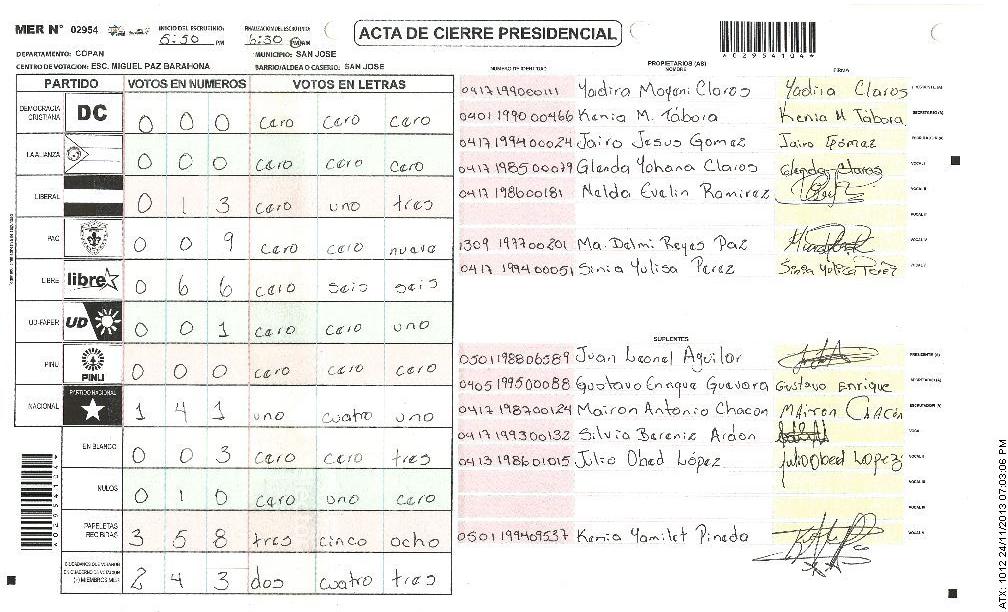 MER N° 02954
INICIO DEL ESCRUTINIO: 5:50 PM
FINALIZACION DEL ESCRUTINIO: 6:30 PM
ACTA DE CIERRE PRESIDENCIAL
*02954104*
DEPARTAMENTO: COPAN
MUNICIPIO: SAN JOSE
CENTRO DE VOTACION: ESC. MIGUEL PAZ BARAHONA
BARRIO/ALDEA O CASERIO: SAN JOSE
PARTIDO VOTOS EN NUMEROS VOTOS EN LETRAS
DEMOCRACIA CRISTIANA DC 0 0 0 cero cero cero
LA ALIANZA 0 0 0 cero cero cero
LIBERAL 0 1 3 cero uno tres
PAC 0 0 9 cero cero nueve
LIBRE libre 0 6 6 cero seis seis
UD-FAPER UD 0 0 1 cero cero uno
PINU PINU 0 0 0 cero cero cero
NACIONAL PARTIDO NACIONAL 1 4 1 uno cuatro uno
EN BLANCO 0 0 3 cero cero tres
NULOS 0 1 0 cero uno cero
PAPELETAS RECIBIDAS 3 5 8 tres cinco ocho
CIUDADANOS QUE VOTARON EN CUADERNO DE VOTACION (+) MIEMBROS MER 2 4 3 dos cuatro tres
PROPIETARIOS (AS)
NUMERO DE IDENTIDAD NOMBRE FIRMA
0417199000111 Yadira Mayeni Claros Yadira Claros PRESIDENTE (A)
0401199000466 Kenia M. Tábora Kenia M Tabora. SECRETARIO (A)
0417199400024 Jairo Jesus Gomez Jairo Gómez ESCRUTADOR (A)
0417198500079 Glenda Yohana Claros Glenda Claros VOCAL I
0417198600181 Nelda Evelin Ramirez VOCAL II
VOCAL III
1309197700201 Ma. Delmi Reyes Paz VOCAL IV
0417199400051 Sinia Yulisa Perez Sinia Yulisa Perez VOCAL V
SUPLENTES
0501198806589 Juan Leonel Aguilar PRESIDENTE (A)
0405199500088 Gustavo Enrique Guevara Gustavo Enrique SECRETARIO (A)
0417198700124 Mairon Antonio Chacon Mairon Chacón ESCRUTADOR (A)
0417199300132 Silvia Bereniz Ardon VOCAL I
0413198601015 Julio Obed López Julio Obed Lopez VOCAL II
VOCAL III
VOCAL IV
0501199409537 Kenia Yamilet Pineda VOCAL V
*02954104*
ATX: 1012 24/11/2013 07:03:06 PM